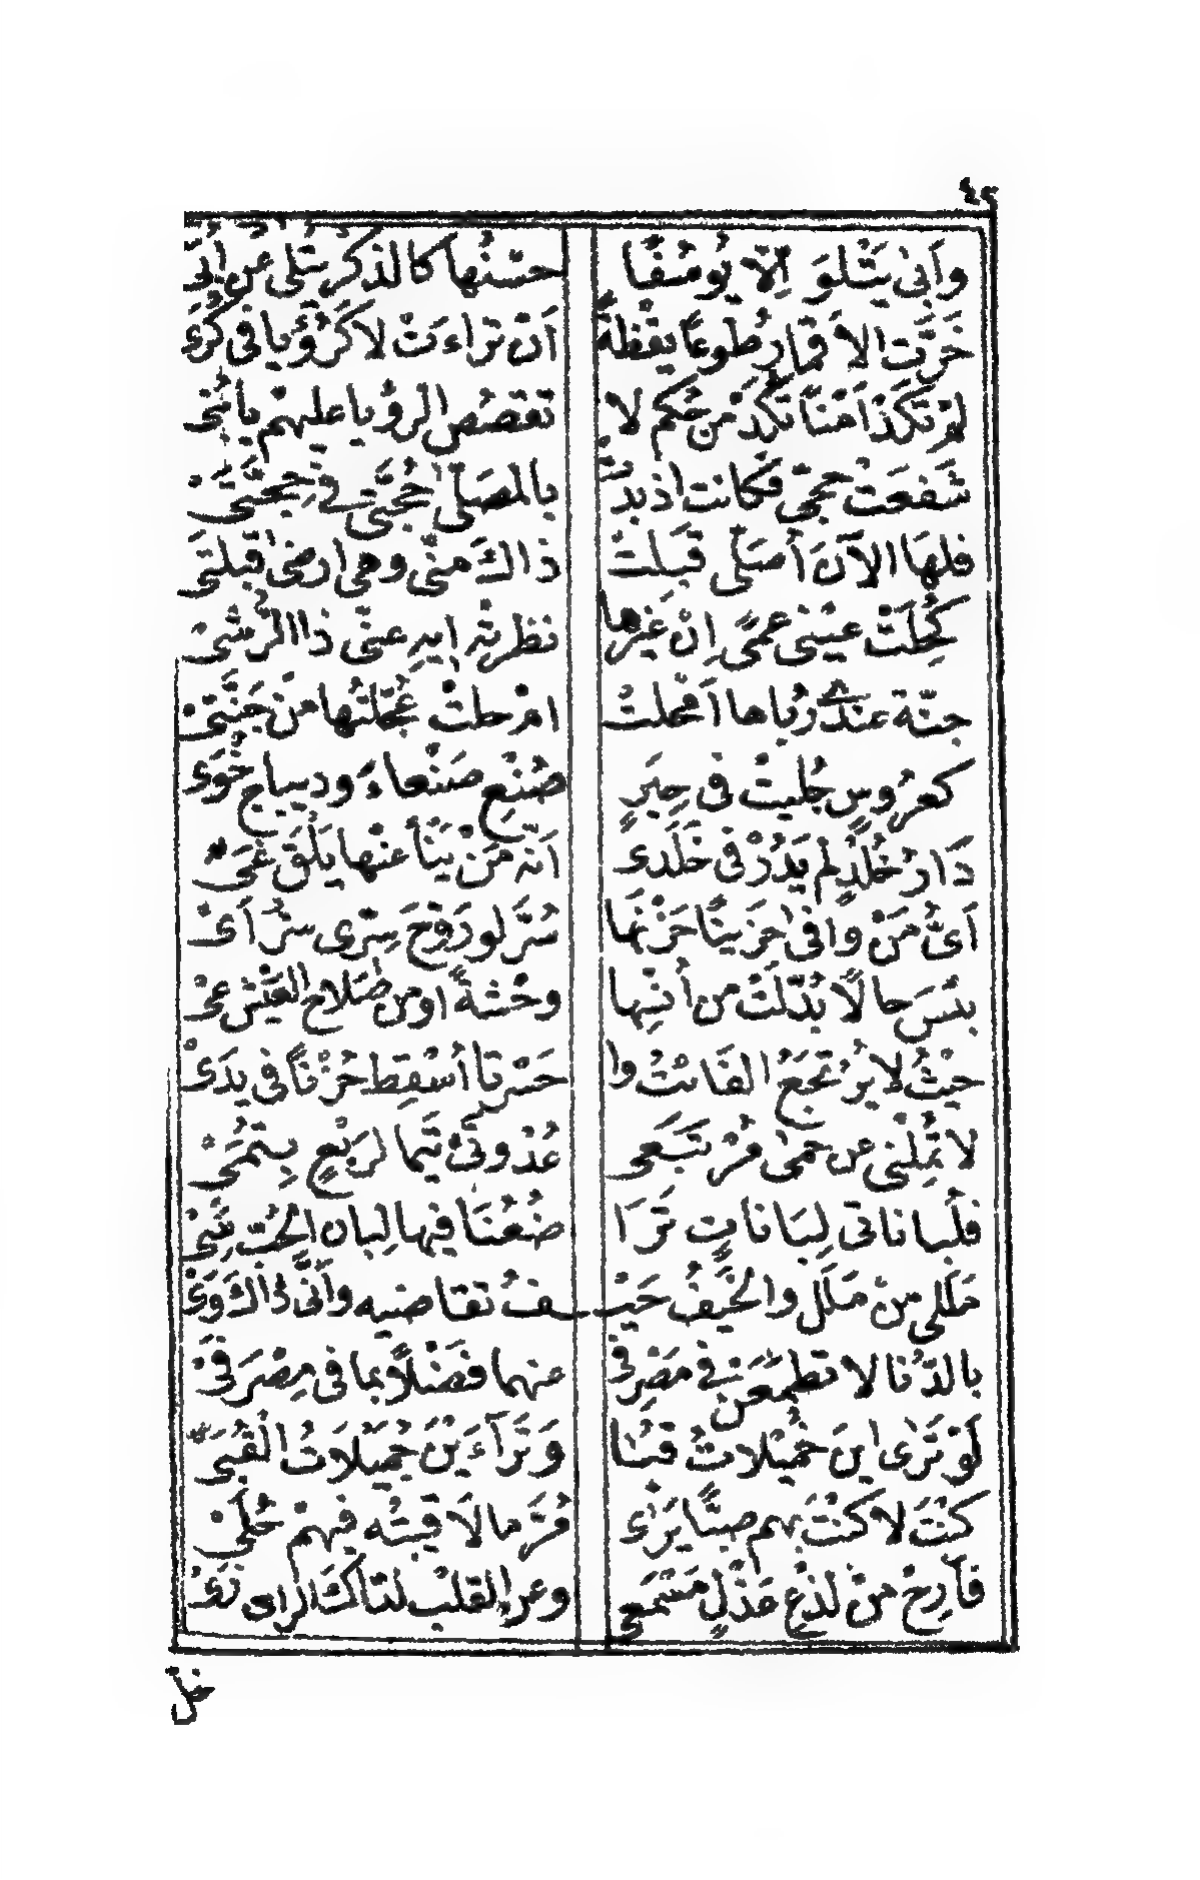 ٤٥
وأبى يتلو إلا يوسفا حسنها كالذكر يتلى عن أبى
خرت الاقمار طوعا يقظة أن تراءت لا كرؤيا فى كرى
لم تكد أمنا تكد من حكم لا تقصص الرؤيا عليهم يا بنى
شفعت حجى فكانت اذ بدت بالمصلى حجتى فى حجتى
فلها الآن أصلى قبلت ذاك منى وهى ارضى قبلتى
كحلت عينى عمى إن غيرها نظرته ايه عنى ذا الرشى
جنة عندى رباها أمحلت ام حلت عجلتها من جنتى
كعروس جليت فى حبر صنع صنعاء وديباج خوى
دار خلد لم يدر فى خلدى أنه من ينأ عنها يلق غى
أى من وافى حزينا حزنها سر لو روح سرى سر أى
بئس حالا بدلت من أنسها وحشة او من صلاح العيش غى
حيث لا يرتجع الفائت وا حسرتا أسقط حزنا فى يدى
لا تملنى عن حمى مرتبعى عدوتى تيما لربع بتمى
فلبانا ناتى لبانات ترا ضعنا فيها لبان الحب سى
مللى من ملل والخيف حيف تقاضيه وأنى ذاك وى
بالدنا لا تطمعن فى مصرفى عنهما فضلا بما فى مصر فى
لو ترى اين خميلات قبا وتراءين جميلات القبى
كنت لا كنت بهم صبا يرى مر ما لاقيته فيهم حلى
فأرح من لذع عذل مسمعى وعن القلب لتاك الراى زى
خل